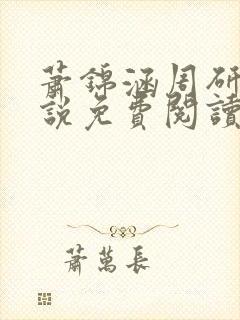 萧錦涵周研
說免費閱讀
萧萬長